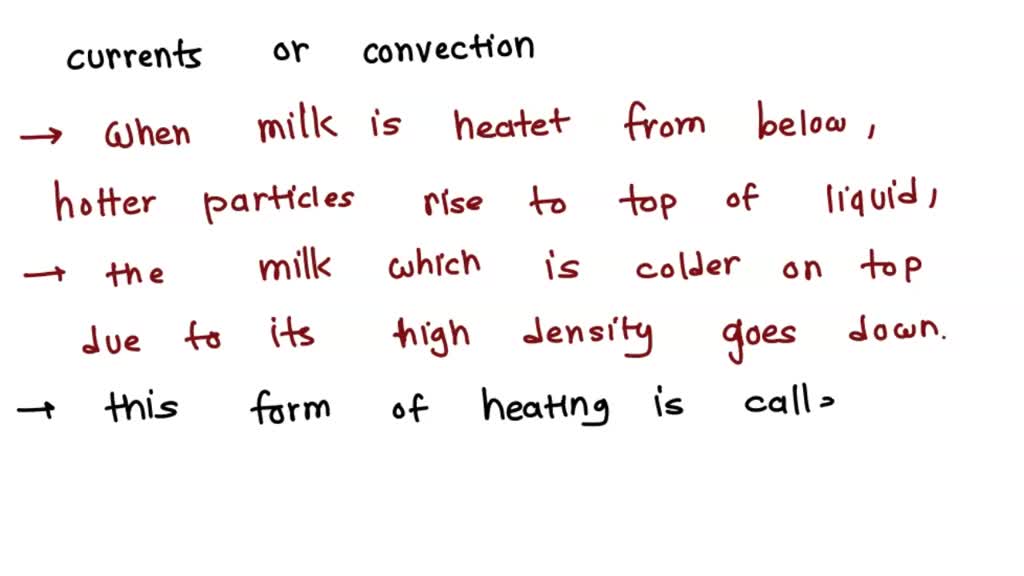 currents or convection
→ when milk is heatet from below,
hotter particles rise to top of liquid,
→ the milk which is colder on top
due to its high density goes down.
→ this form of heating is call